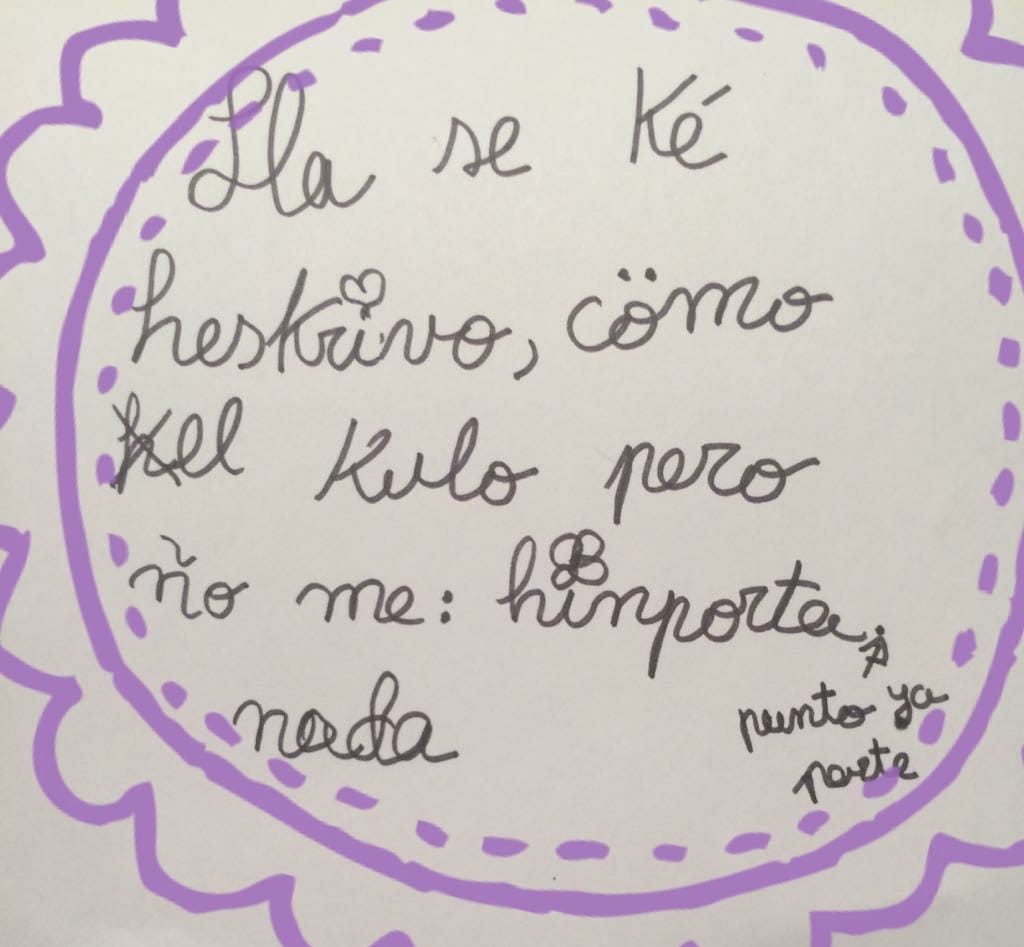 Lla se Ké
heskrivo, cömo
Kel Kulo pero
ño me: hinporta.
nada
punto ya
parte